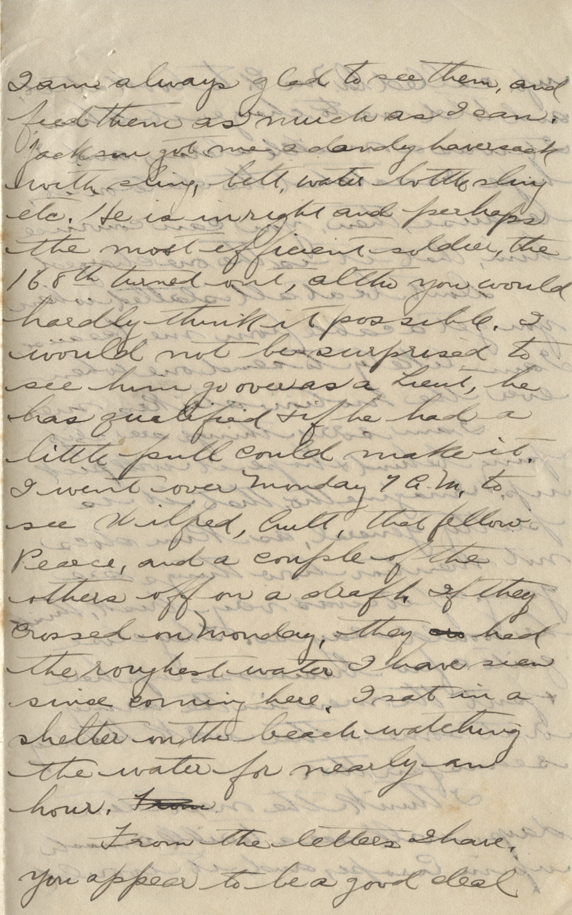 I am always glad to see them, and
feed them as much as I can.
Jackson got me a dandy haversack
with sling, belt, water bottle sling
etc. He is in right and perhaps
the most efficient soldier, the
168th turned out, altho you would
hardly think it possible. I
would not be surprised to
see him go over as a Lieut, he
has qualified & if he had a
little pull could make it.
I went over Monday 7 A.M. to
see Wilfred, Cutt, that fellow
Pearce, and a couple of the
others off on a draft. If they
crossed on Monday, they had
the roughest water I have seen
since coming here. I sat in a
shelter on the beach watching
the water for nearly an
hour. From
From the letters I have,
you appear to be a good deal